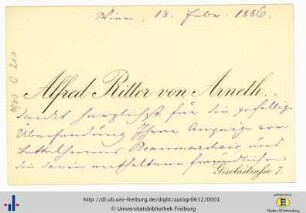 Wien, 18. Febr. 1886.
Alfred Ritter von Arneth.
dankt herzlichst für die gefällige
Übersendung Ihrer Anzeige von
Bettelheims Beaumarchais und
die darin enthaltene freundliche
Giselastraße 7.
http://dl.ub.uni-freiburg.de/diglit/autogr0612/0001
© Universitätsbibliothek Freiburg